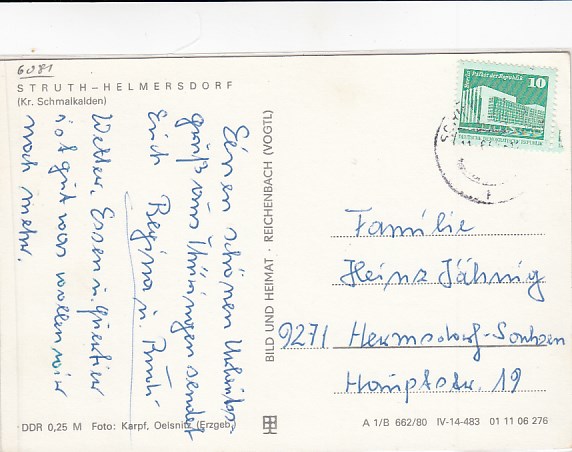 6081
STRUTH-HELMERSDORF
(Kr. Schmalkalden)
Einen schönen Urlaubs-
gruß aus Thüringen sendet
Euch Regina u.
Wetter, Essen u. Quartier
ist gut was wollen wir
noch mehr.
DDR 0,25 M Foto: Karpf, Oelsnitz (Erzgeb.)
BILD UND HEIMAT · REICHENBACH (VOGTL)
Palast der Republik
10
Familie
Heinz Jähnig
9271 Hermsdorf-Sachsen
Hauptstr. 19
A 1/B 662/80 IV-14-483 01 11 06 276